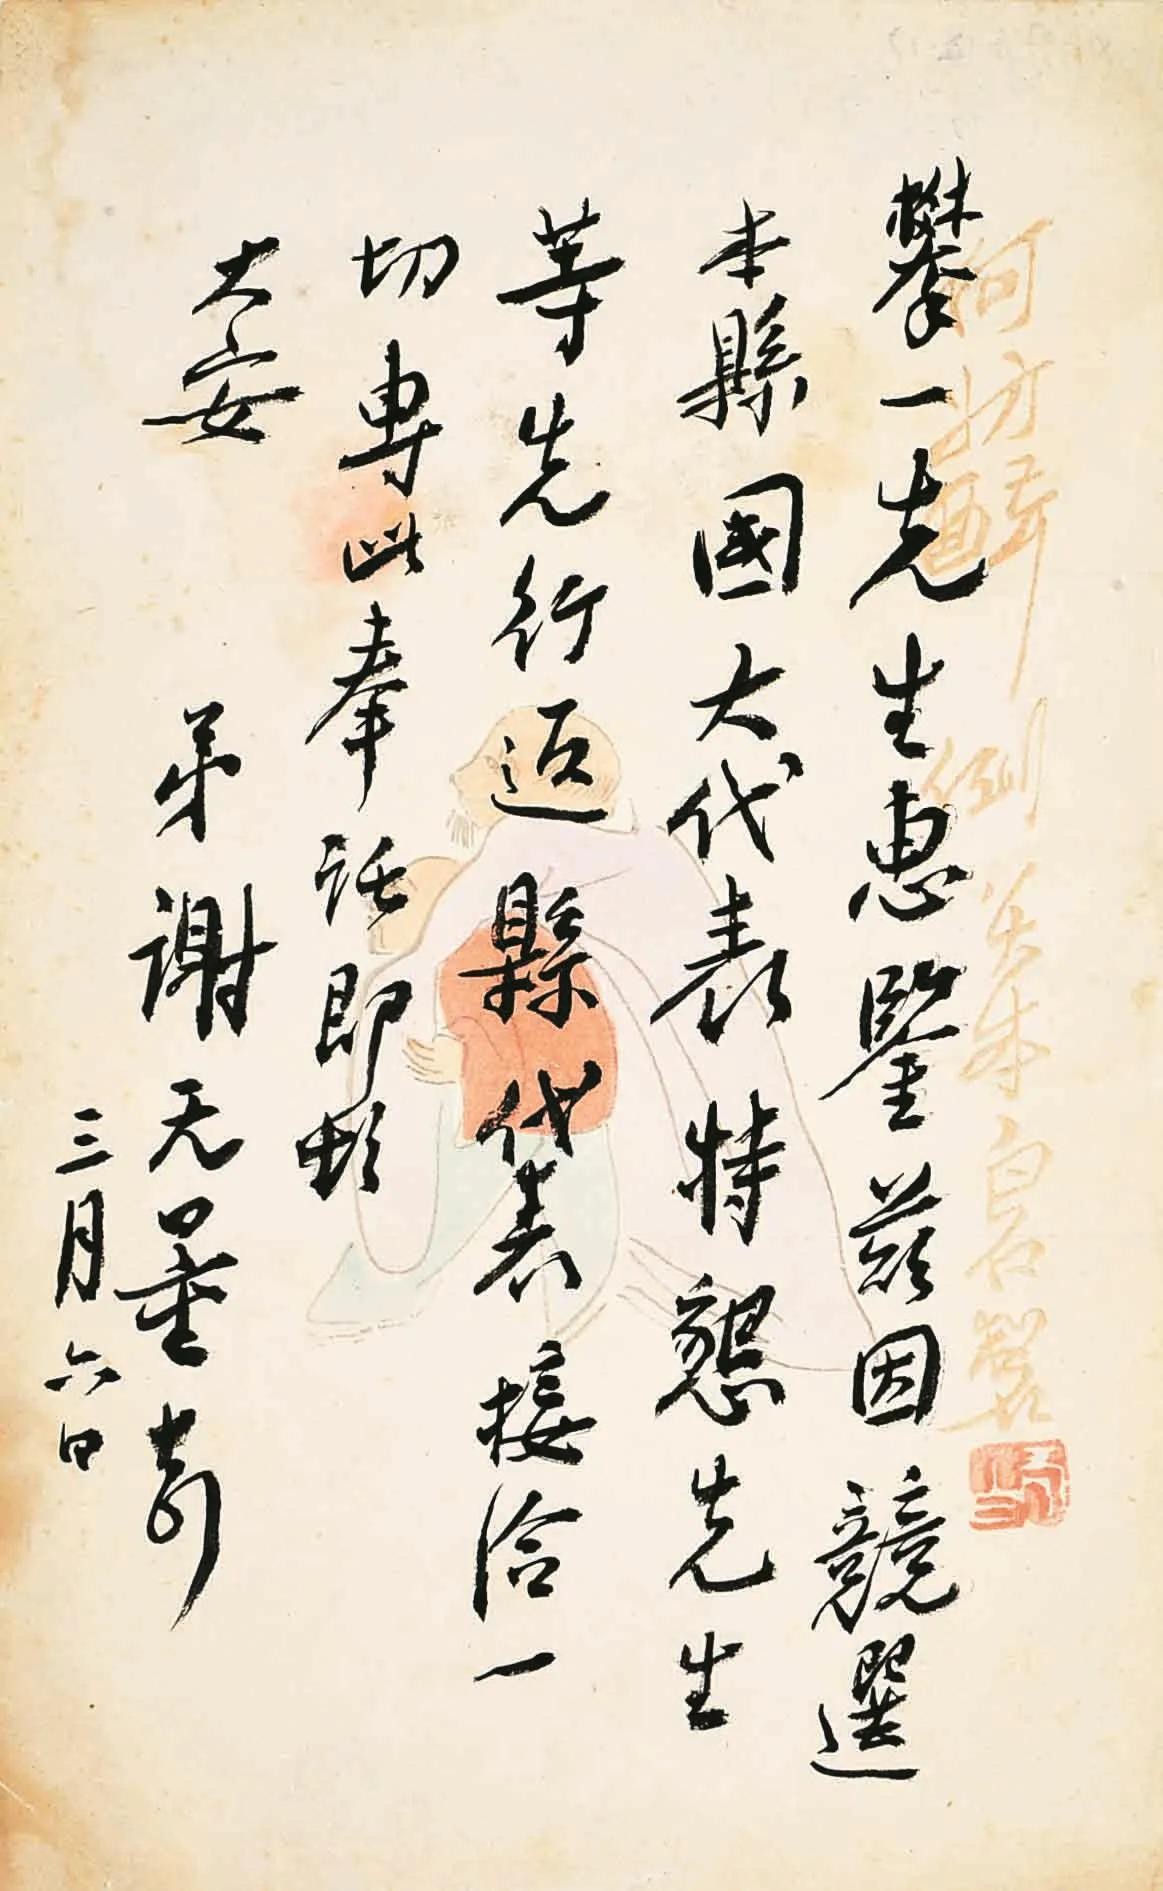 何妨醉倒 白石製
攀一先生惠鑒茲因競選
本縣國大代表特懇先生
等先行返縣代表接洽一
切專此奉託即頌
大安
弟謝无量
三月六日